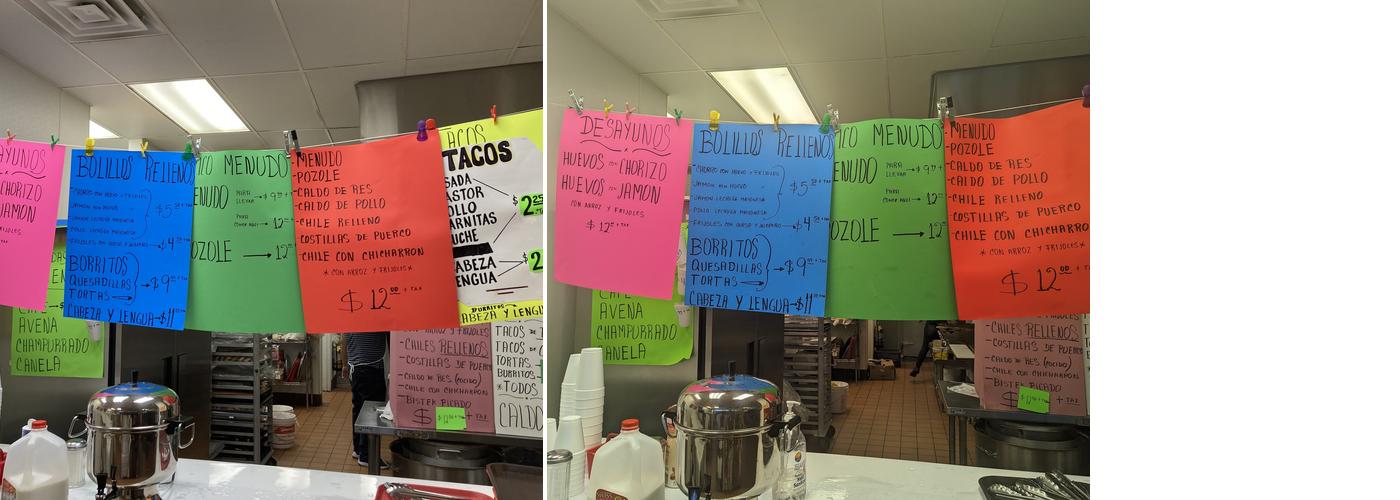 AYUNOS
CHORIZO
JAMON
BOLILLOS RELLENOS
CHORIZO CON HUEVO Y FRIJOLES
JAMON CON HUEVO
JAMON LECHUGA MAYONESA
POLLO LECHUGA MAYONESA
$5
FRIJOLES CON QUESO Y
$4
BORRITOS
QUESADILLAS
TORTAS
$9
CABEZA Y LENGUA $11
MENUDO
ENUDO
PARA
LLEVAR
$9
PARA
COMER AQUI
12
OZOLE
12
-MENUDO
-POZOLE
-CALDO DE RES
-CALDO DE POLLO
-CHILE RELLENO
-COSTILLAS DE PUERCO
-CHILE CON CHICHARRON
*CON ARROZ Y FRIJOLES*
$12.00 + TAX
TACOS
TACOS
SADA
ASTOR
OLLO
ARNITAS
UCHE
$2.25
ABEZA
ENGUA
$2
BURRITOS
ABEZA Y LENGU
AVENA
CHAMPURRADO
CANELA
Y FRIJOLES
CHILES RELLENOS
-COSTILLAS DE PUERCO
-CALDO DE RES (COCIDO)
-CHILE CON CHICHARRON
-BISTEK PICADO
$
+ TAX
TACOS DE
TACOS DE
TORTAS
BURRITOS
*TODOS
CALDO
DESAYUNOS
HUEVOS CON CHORIZO
HUEVOS CON JAMON
CON ARROZ Y FRIJOLES
$12 + TAX
BOLILLOS RELLENOS
CHORIZO CON HUEVO Y FRIJOLES
JAMON CON HUEVO
JAMON LECHUGA MAYONESA
POLLO LECHUGA MAYONESA
$5
FRIJOLES CON QUESO Y
$4
BORRITOS
QUESADILLAS
TORTAS
$9
CABEZA Y LENGUA $11
MENUDO
ENUDO
PARA
LLEVAR
$9
PARA
COMER AQUI
12
OZOLE
12
-MENUDO
-POZOLE
-CALDO DE RES
-CALDO DE POLLO
-CHILE RELLENO
-COSTILLAS DE PUERCO
-CHILE CON CHICHARRO
*CON ARROZ Y FRIJOLES
$12.00 + TAX
CAFE
AVENA
CHAMPURRADO
ANELA
CHILES RELLENOS
-COSTILLAS DE PUERCO
-CALDO DE RES (COCIDO)
-CHILE CON CHICHARRON
-BISTEK PICADO
$
+ TAX